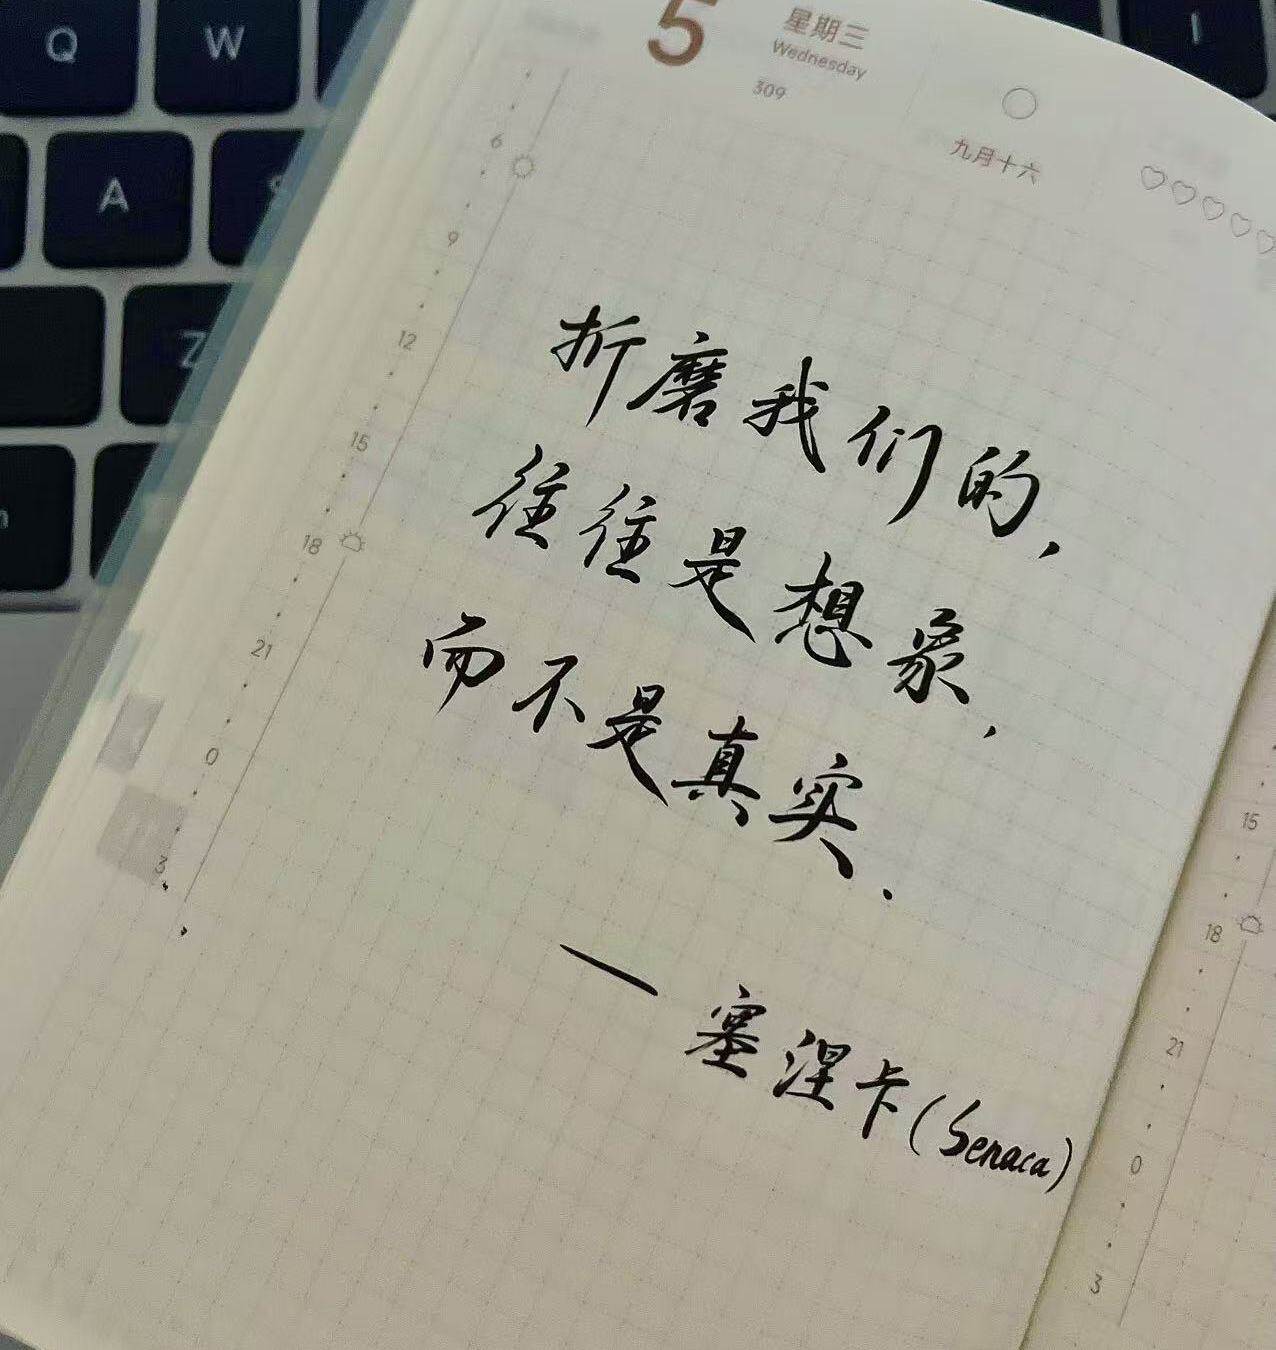 Q W I
A
Z
5 星期三
Wednesday
309
九月十六
6
9
12
15
18
21
0
3
折磨我们的,
往往是想象,
而不是真实.
— 塞涅卡(Senaca)
15
18
21
0
3